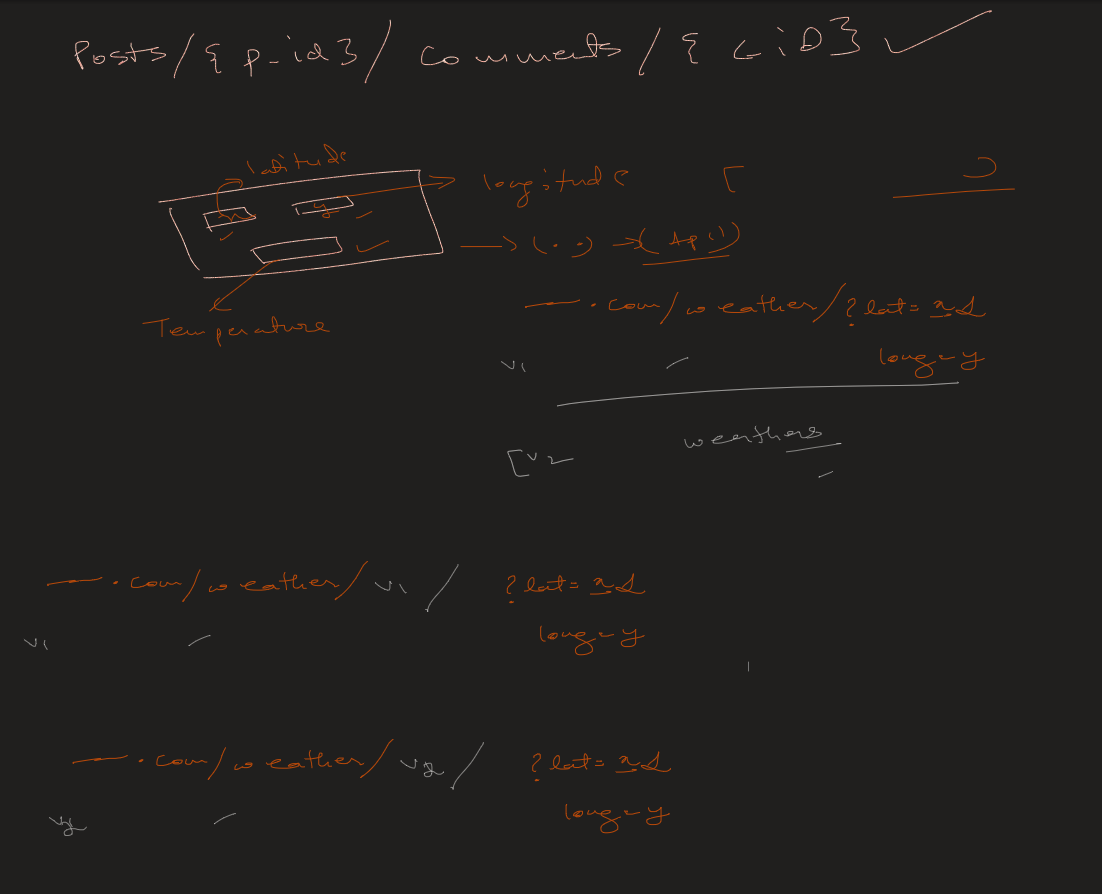 Posts/{p-id}/comments/{CiD}
latitude
x y → longitude [ ]
→ (..) → (Api())
Temperature
— .com/weather/?lat=x&
long=y
v1
[v2 weathers
— .com/weather/v1/ ?lat=x&
long=y
v1
— .com/weather/v2/ ?lat=x&
long=y
v2